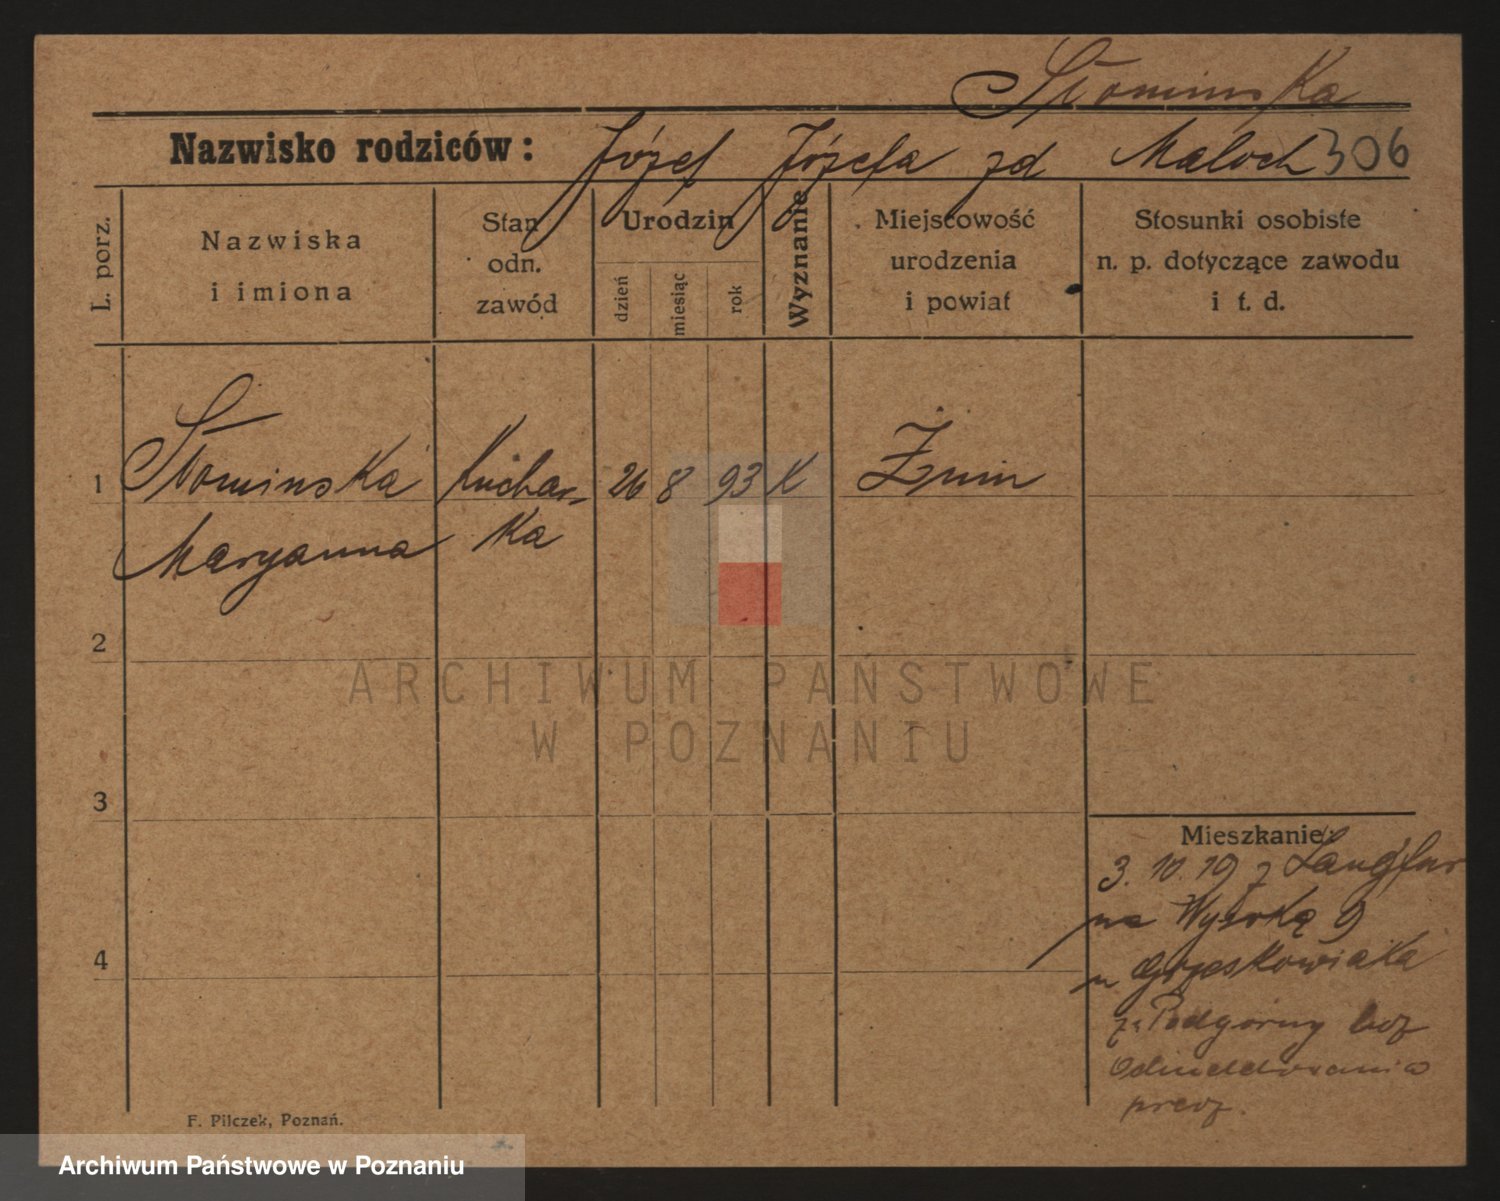 Słominska
Nazwisko rodziców: Józef Józefa zd Maloch 306
L. porz.
Nazwiska i imiona
Stan odn. zawód
Urodzin
dzień
miesiąc
rok
Wyznanie
Miejscowość urodzenia i powiat
Stosunki osobiste n. p. dotyczące zawodu i t. d.
1 Słominska Kuchar- 26 8 93 K Żnin
Maryanna ka
2
ARCHIWUM PAŃSTWOWE
W POZNANIU
3
Mieszkanie:
3. 10. 19 z Langfur
na Wysoką 9
4
u Grzeskowiaka
Podgórny bez
odmeldowania
F. Pilczek, Poznań.
Archiwum Państwowe w Poznaniu